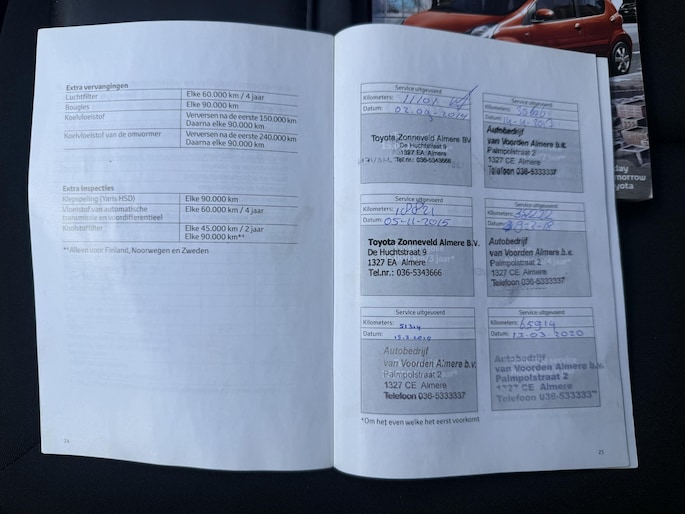 Extra vervangingen
Luchtfilter Elke 60.000 km / 4 jaar
Bougies Elke 90.000 km
Koelvloeistof Verversen na de eerste 150.000 km
Daarna elke 90.000 km
Koelvloeistof van de omvormer Verversen na de eerste 240.000 km
Daarna elke 90.000 km
Extra inspecties
Klepspeling (Yaris HSD) Elke 90.000 km
Vloeistof van automatische
transmissie en voordifferentieel Elke 60.000 km / 4 jaar
Koolstoffilter Elke 45.000 km / 2 jaar
Elke 90.000 km*¹
*¹Alleen voor Finland, Noorwegen en Zweden
24
Service uitgevoerd
Kilometers: 11101
Datum: 02-09-2014
Toyota Zonneveld Almere BV
De Huchtstraat 9
1327 EA Almere
Tel.nr: 036-5343666
Service uitgevoerd
Kilometers:
Datum:
Autobedrijf
van Voorden Almere b.v.
Palmpolstraat 2
1327 CE Almere
Telefoon 036-5333337
Service uitgevoerd
Kilometers:
Datum: 05-11-2015
Toyota Zonneveld Almere B.V.
De Huchtstraat 9
1327 EA Almere
Tel.nr.: 036-5343666
Service uitgevoerd
Kilometers:
Datum:
Autobedrijf
van Voorden Almere b.v.
Palmpolstraat 2
1327 CE Almere
Telefoon 036-5333337
Service uitgevoerd
Kilometers: 51314
Datum:
Autobedrijf
van Voorden Almere b.v.
Palmpolstraat 2
1327 CE Almere
Telefoon 036-5333337
Service uitgevoerd
Kilometers: 65914
Datum: 12-03-2020
Autobedrijf
van Voorden Almere b.v.
Palmpolstraat 2
CE Almere
Telefoon 036-5333337
*Om het even welke het eerst voorkomt
25